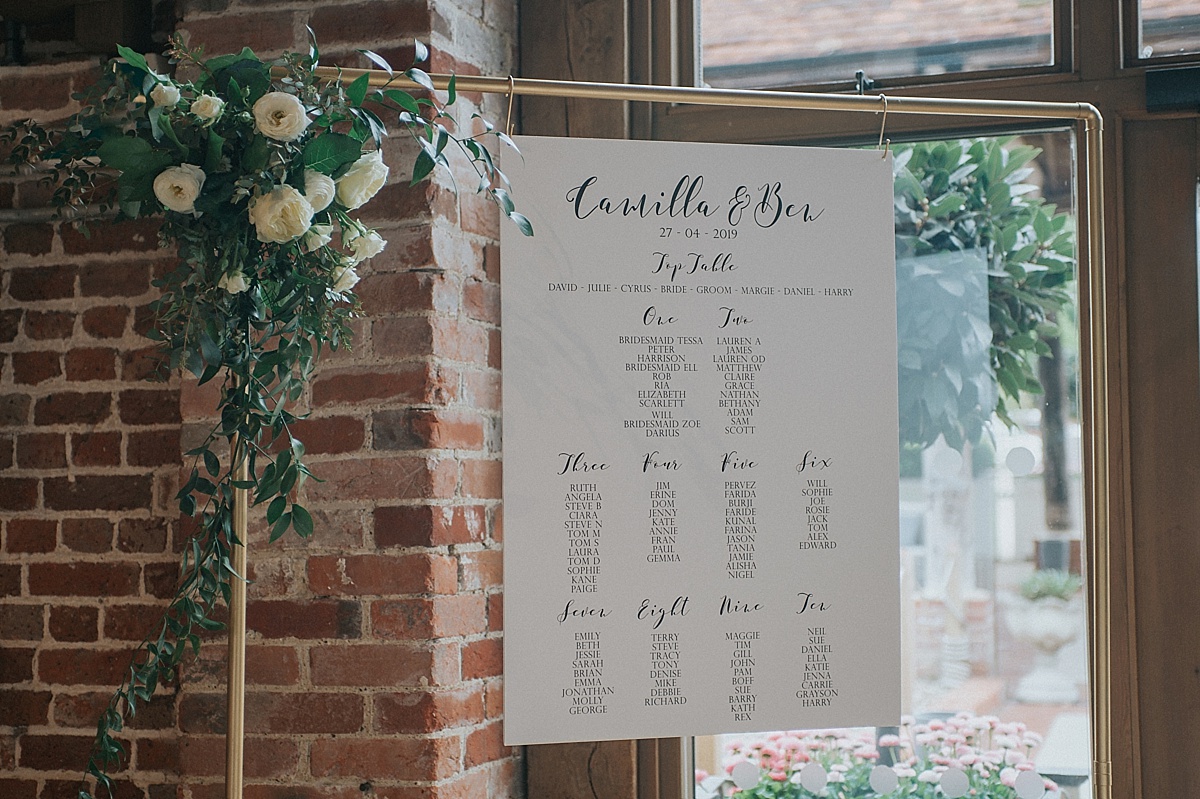 Camilla & Ben
27 - 04 - 2019
Top Table
DAVID - JULIE - CYRUS - BRIDE - GROOM - MARGIE - DANIEL - HARRY
One
BRIDESMAID TESSA
PETER
HARRISON
BRIDESMAID ELL
ROB
RIA
ELIZABETH
SCARLETT
WILL
BRIDESMAID ZOE
DARIUS
Two
LAUREN A
JAMES
LAUREN OD
MATTHEW
CLAIRE
GRACE
NATHAN
BETHANY
ADAM
SAM
SCOTT
Three
RUTH
ANGELA
STEVE B
CIARA
STEVE N
TOM M
TOM S
LAURA
TOM D
SOPHIE
KANE
PAIGE
Four
JIM
ERINE
DOM
JENNY
KATE
ANNIE
FRAN
PAUL
GEMMA
Five
PERVEZ
FARIDA
BURJI
FARIDE
KUNAL
FARINA
JASON
TANIA
JAMIE
ALISHA
NIGEL
Six
WILL
SOPHIE
JOE
ROSIE
JACK
TOM
ALEX
EDWARD
Seven
EMILY
BETH
JESSIE
SARAH
BRIAN
EMMA
JONATHAN
MOLLY
GEORGE
Eight
TERRY
STEVE
TRACY
TONY
DENISE
MIKE
DEBBIE
RICHARD
Nine
MAGGIE
TIM
GILL
JOHN
PAM
BOFF
SUE
BARRY
KATH
REX
Ten
NEIL
SUE
DANIEL
ELLA
KATIE
JENNA
CARRIE
GRAYSON
HARRY